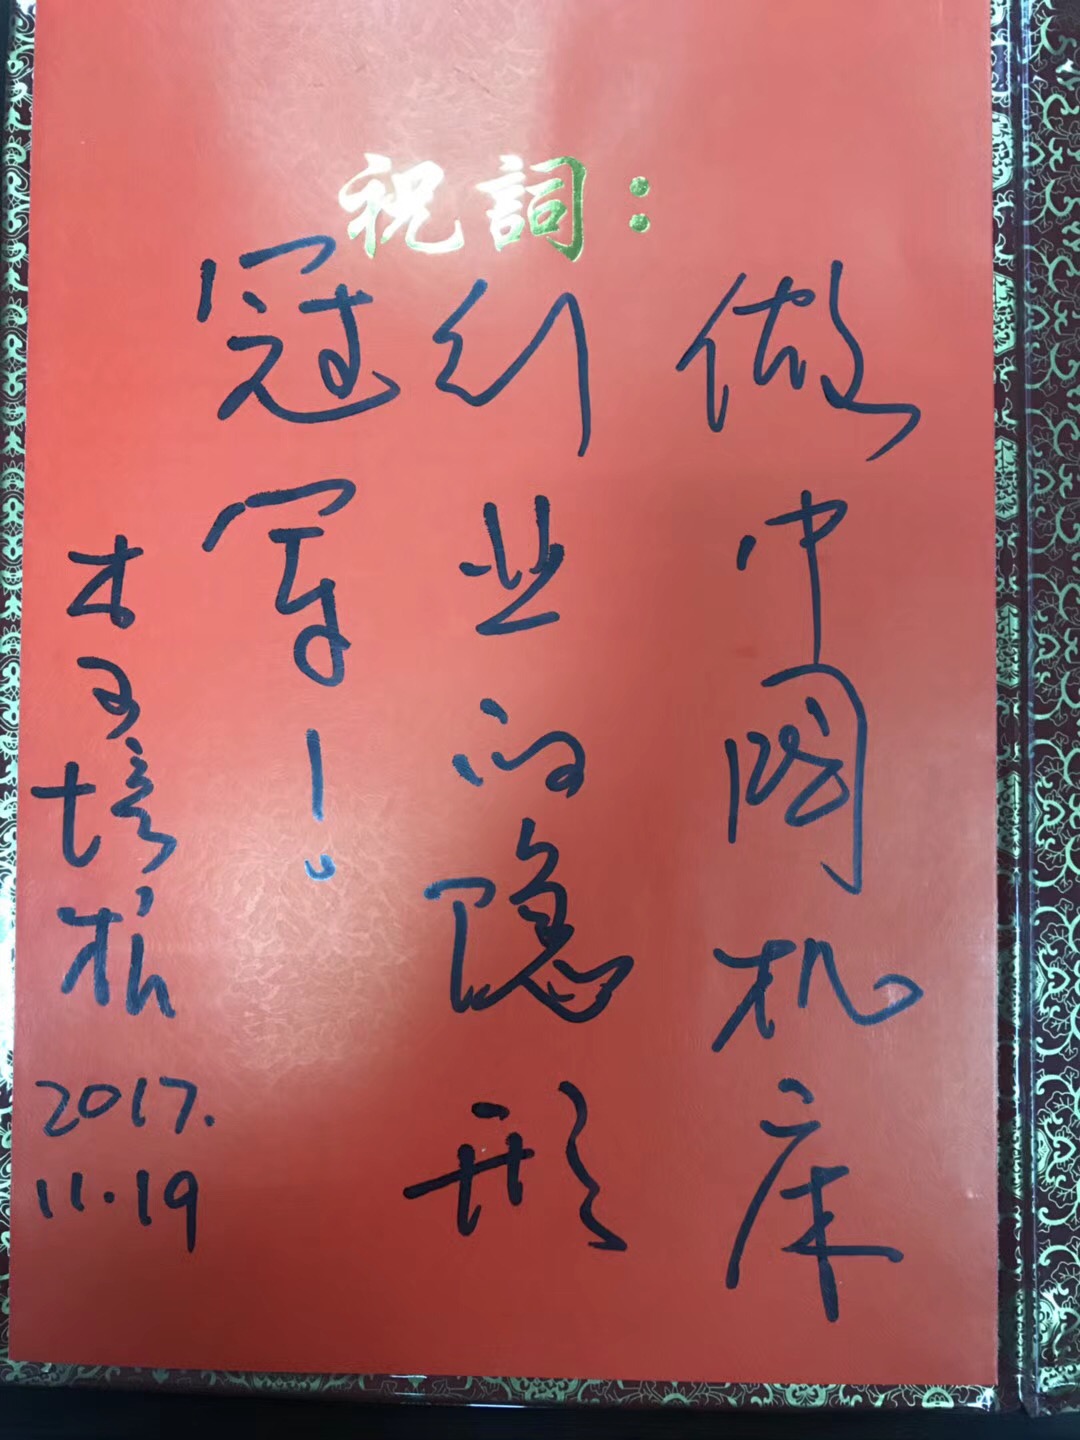 祝詞：
做中国机床
行业的隐形
冠军！
李培根
2017.
11.19